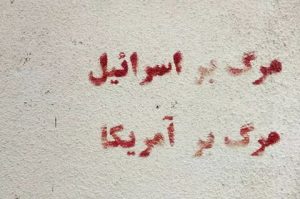 مرگ بر اسرائیل
مرگ بر آمریکا